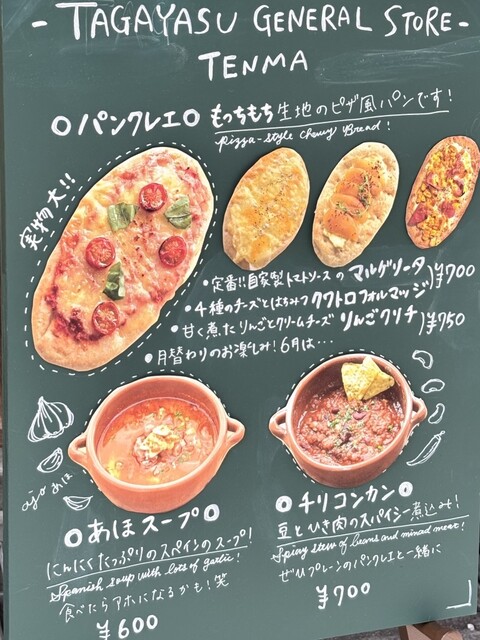 - TAGAYASU GENERAL STORE -
TENMA
○パンクレエ○ もっちもち生地のピザ風パンです!
Pizza-style Chewy Bread!
実物大!!
・定番!!自家製トマトソースの マルゲリータ
・4種のチーズとはちみつ クワトロフォルマッジ
)¥700
・甘く煮たりんごとクリームチーズ りんごクリチ)¥750
・月替わりのお楽しみ!6月は…
ajo あほ
○あほスープ○
にんにくたっぷりのスペインのスープ!
Spanish soup with lots of garlic!
食べたらアホになるかも!笑
¥600
○チリコンカン○
豆とひき肉のスパイシー煮込み!
Spicy stew of beans and minced meat!
ぜひプレーンのパンクレエと一緒に
¥700